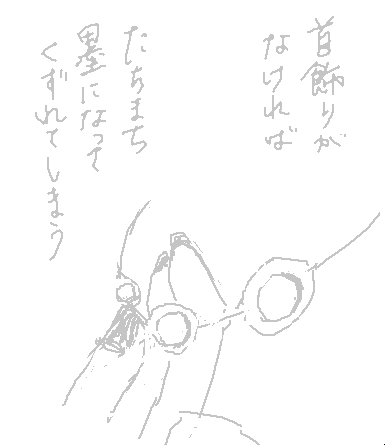 首飾りが
なければ
たちまち
墨になって
くずれてしまう